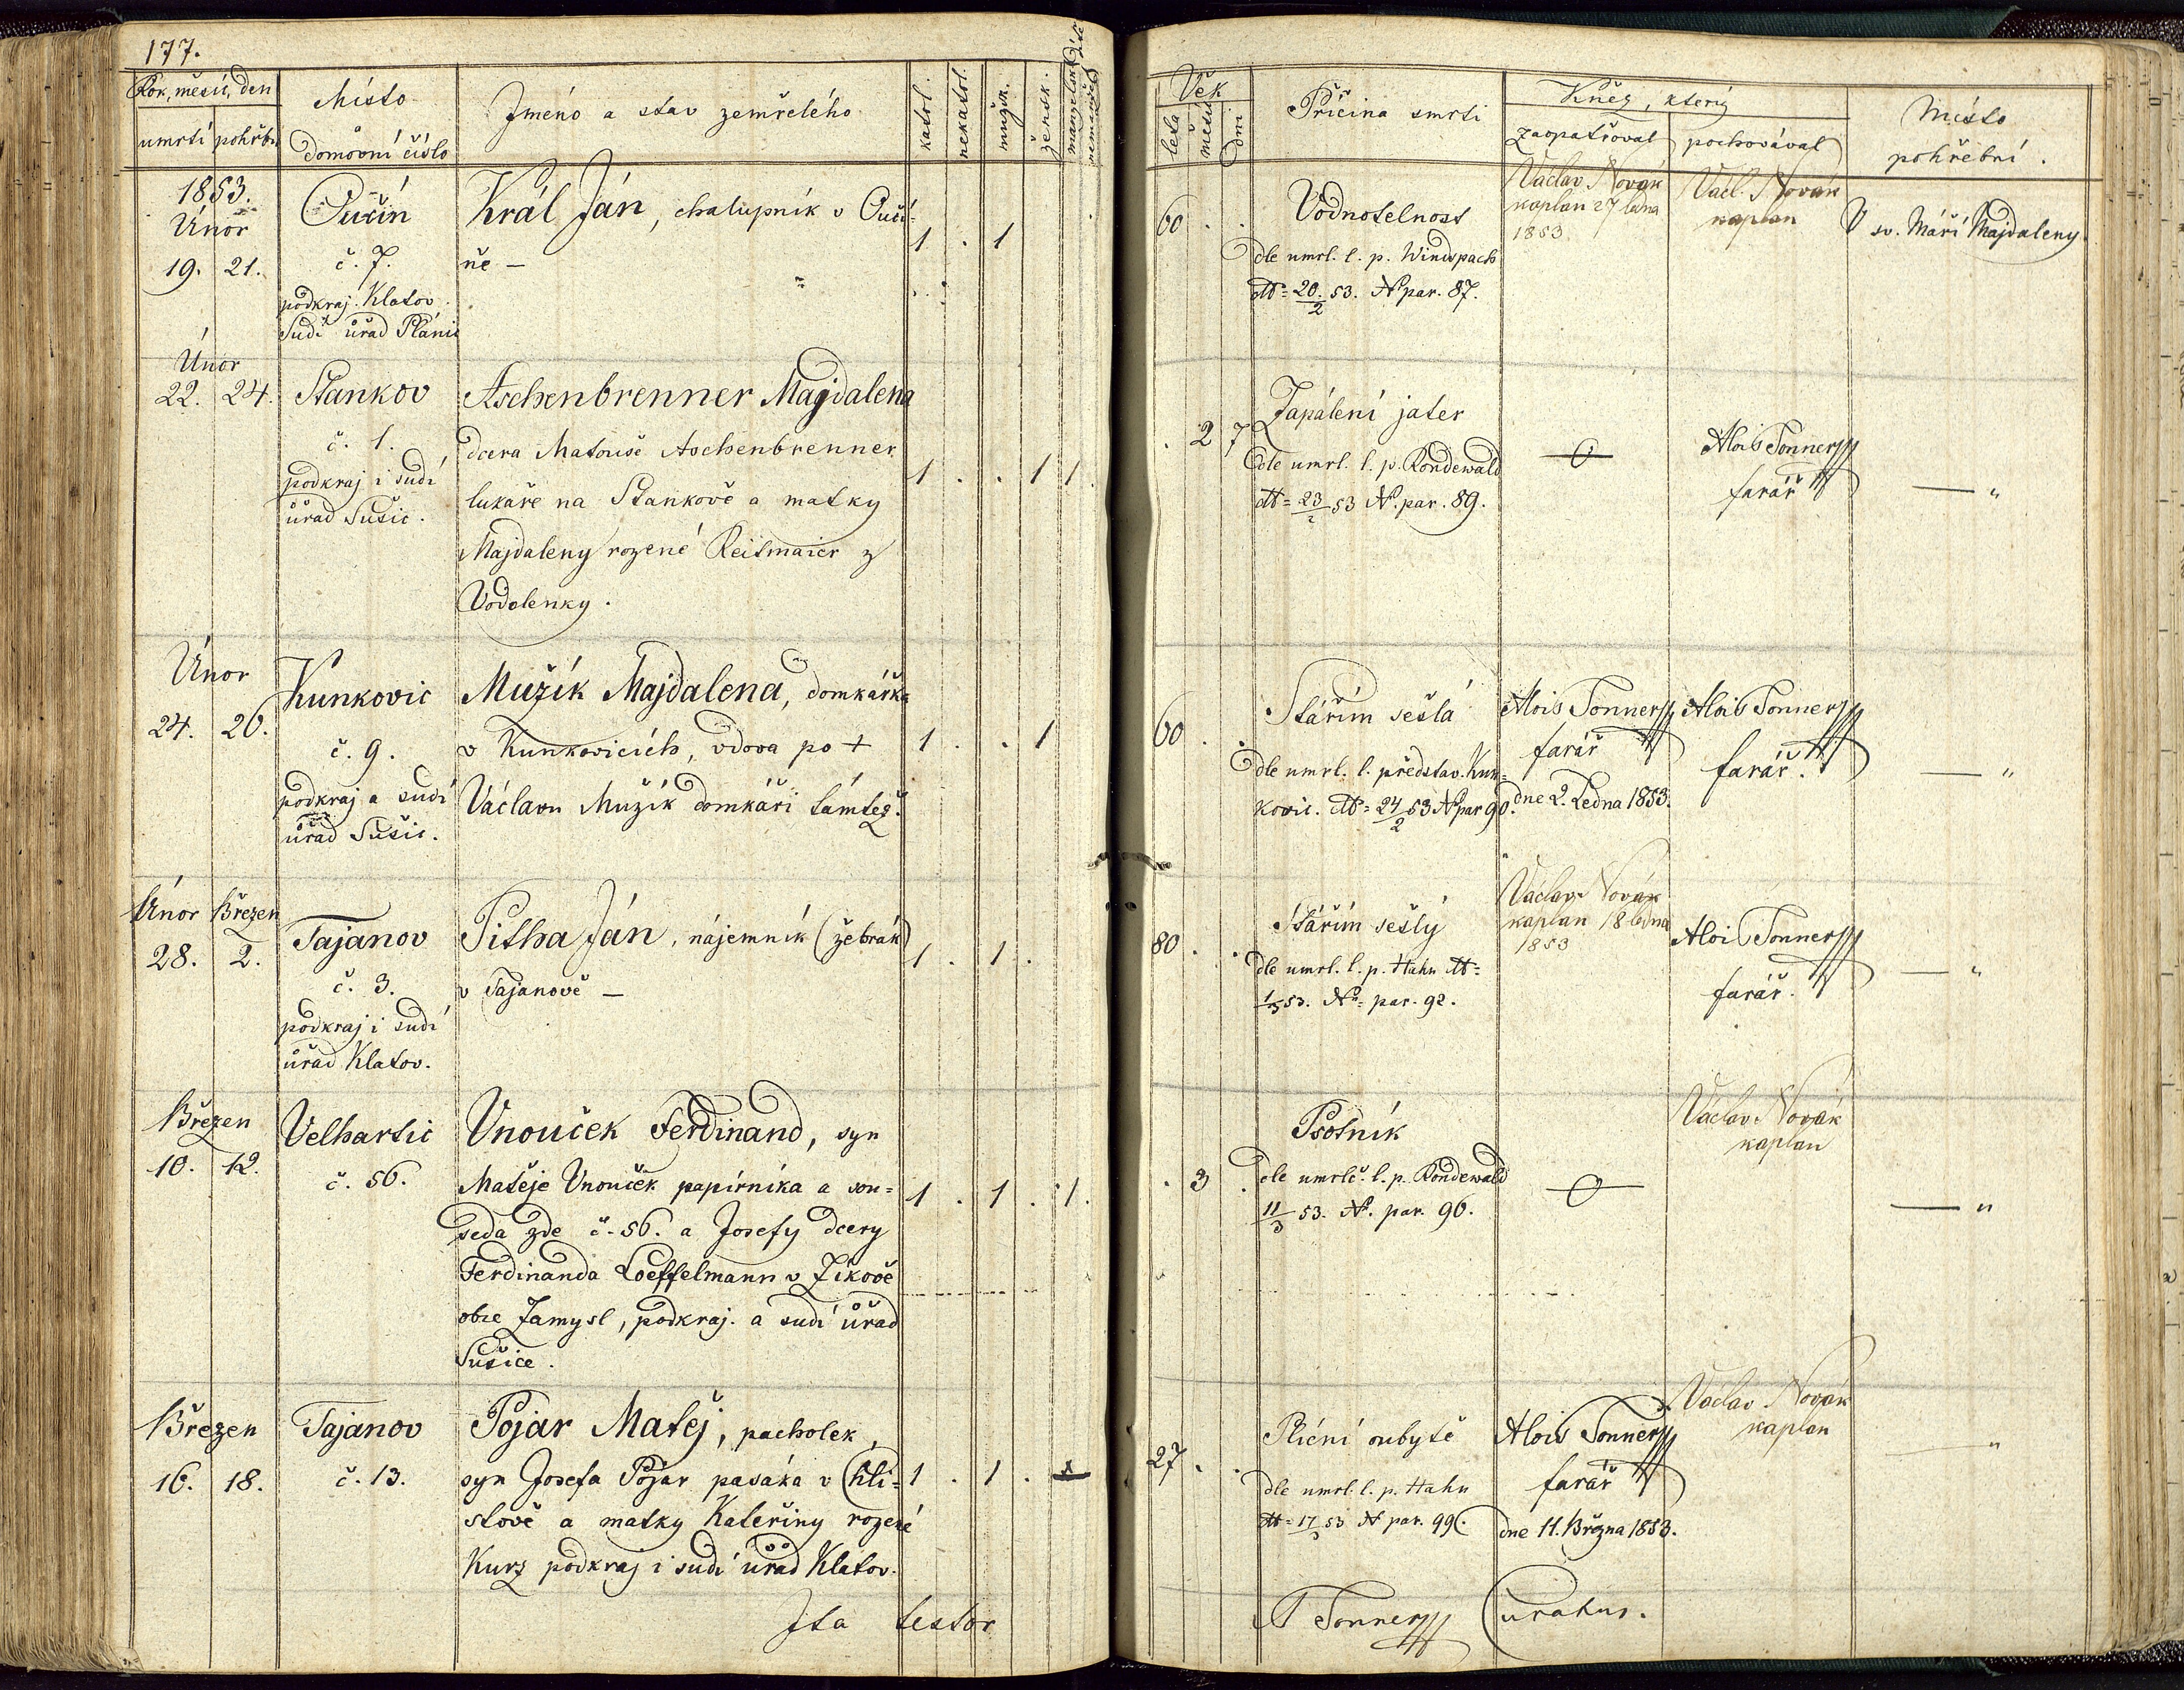 177.
Rok, měsíc, den
umrtí pohřbu
Místo
domovní číslo
Jméno a stav zemřelého
katol.
nekatol.
mužsk.
žensk.
manželské
nemanžel
Věk
leta
měsíc
dni
Příčina smrti
Kněz, který
zaopatřoval
pochovával
Místo
pohřební.
1853.
Únor
19. 21.
Oučín
č. 7.
podkraj. Klatov.
Sudí úřad Plánic
Král Ján, chalupník v Oučí-
ně —
1 . 1
60 . .
Vodnotelnost
dle umrl. l. p. Windspach
dtt = 20./2 53. No par. 87.
Václav Novák
kaplan 27 ledna
1853
Václ. Novák
kaplan
U sv. Máří Majdaleny.
Únor
22. 24.
Stankov
č. 1.
podkraj i sudí
úřad Sušic.
Aschenbrenner Magdalena
dcera Matouše Aschenbrenner
lukaře na Stankově a matky
Majdaleny rozené Reitmaier z
Vodolenky.
1 . . 1 1
. 2 7
Zapálení jater
dle umrl. l. p. Rondewald
dtt = 23/2 53 No. par. 89.
—0—
Alois Tonner
farář
— "
Únor
24. 26.
Kunkovic
č. 9.
podkraj a sudí
úřad Sušic.
Mužík Majdalena, domkářka
v Kunkovicích, vdova po +
Václavu Mužík domkáři támtéž.
1 . . 1
60 . .
Stářím sešlá
dle umrl. l. představ. Kun-
kovic. dtt = 24/2 53 No par 90.
Alois Tonner
farář
dne 2. Ledna 1853.
Alois Tonner
farář.
— "
Únor Březen
28. 2.
Tajanov
č. 3.
podkraj i sudí
úřad Klatov.
Pitha Ján, nájemník (žebrák)
v Tajanově —
1 . 1 .
80 . .
Stářím sešlý
dle umrl. l. p. Hahn dtt =
1/3 53. No = par. 92.
Václav Novák
kaplan 18 ledna
1853
Alois Tonner
farář.
— "
Březen
10. 12.
Velhartic
č. 56.
Vnouček Ferdinand, syn
Matěje Vnouček papírníka a sou-
seda zde č. 56. a Josefy dcery
Ferdinanda Loeffelmann v Žíkově
obce Zamysl, podkraj. a sudí úřad
Sušice.
1 . 1 . 1.
. 3 .
Psotník
dle umrlč. l. p. Rondewald
11/3 53. No. par. 96.
—0—
Václav Novák
kaplan
— "
Březen
16. 18.
Tajanov
č. 13.
Pojar Matěj, pacholek,
syn Josefa Pojar pasáka v Chli-
stově a matky Kateřiny rozené
Kurz podkraj i sudí úřad Klatov.
1 . 1 .
27 . .
Plicní oubytě
dle umrl. l. p. Hahn
dtt = 17/3 53 No par. 99.
Alois Tonner
farář
dne 11. Března 1853.
Václav Novák
kaplan
— "
Ita testor
A Tonner Curatus.